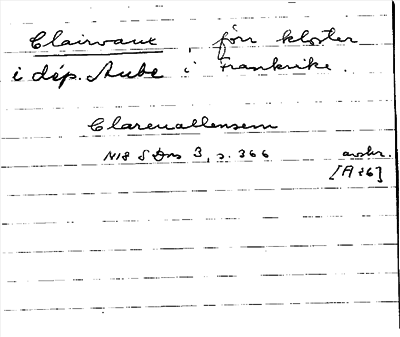 Clairvaux, förr kloster
i dép. Aube i Frankrike.
Clareuallensem
1418 SDns 3, s. 366 avskr.
[A 26]